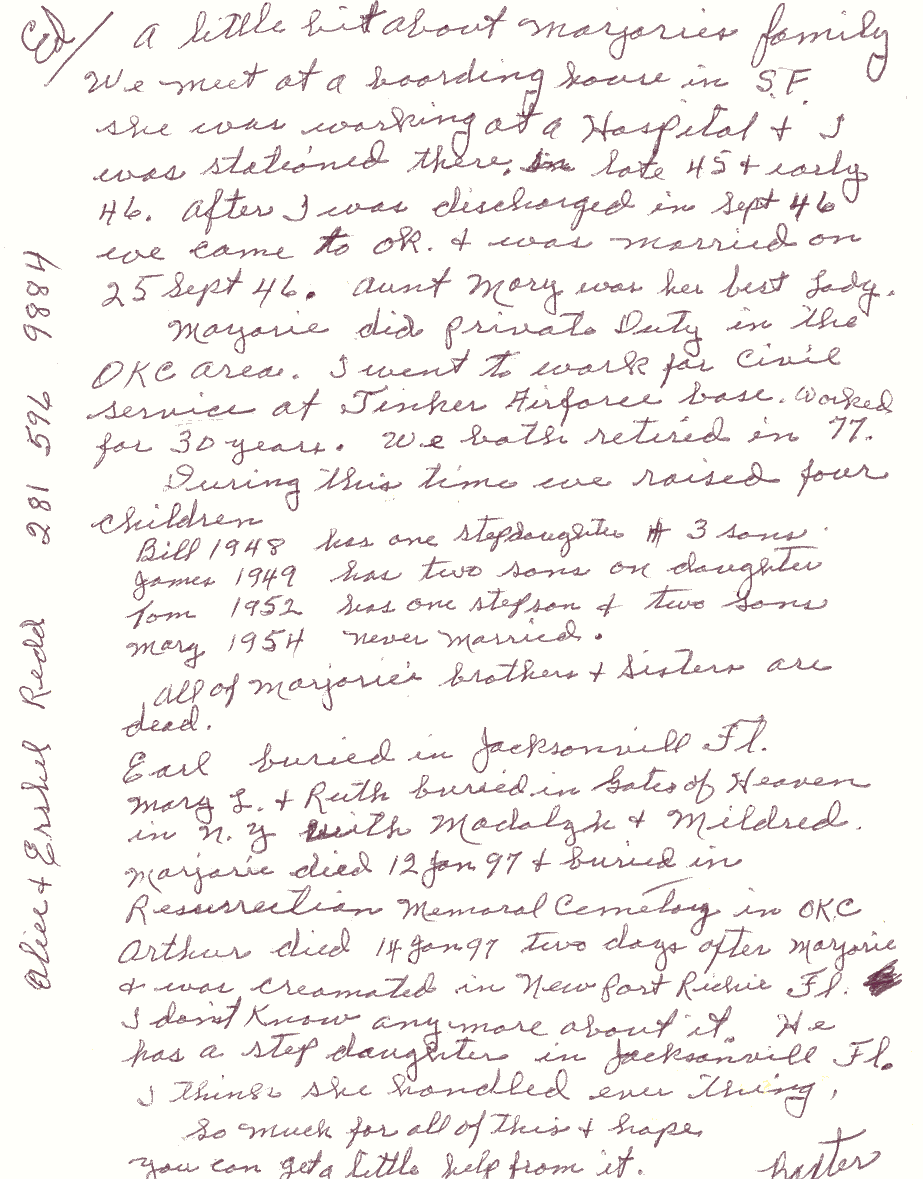 Ed/ A little bit about Marjories family
We meet at a boarding house in S.F.
she was working at a Hospital + I
was stationed there, in late 45 + early
46. After I was discharged in Sept 46
we came to OK. + was married on
25 Sept 46. Aunt Mary was her best Lady.
Marjorie did private Duty in the
OKC area. I went to work for Civil
service at Tinker Airforce base. Worked
for 30 years. We both retired in 77.
During this time we raised four
children
Bill 1948 has one stepdaughter + 3 sons.
James 1949 has two sons on daughter
Tom 1952 has one stepson + two sons
Mary 1954 never married.
All of Marjorie's brothers + sisters are
dead.
Earl buried in Jacksonvill Fl.
Mary L. + Ruth buried in Gates of Heaven
in N.Y with Madalyn + Mildred.
Marjorie died 12 Jan 97 + buried in
Resurrection Memoral Cemetary in OKC
Arthur died 14 Jan 97 two days after Marjorie
+ was creamated in New Port Richie Fl.
I don't Know any more about it. He
has a step daughter in Jacksonvill Fl.
I think she handled ever thing.
So much for all of this + hope
you can get a little help from it.
Baxter
Alice + Ershel Redd 281 596 9884